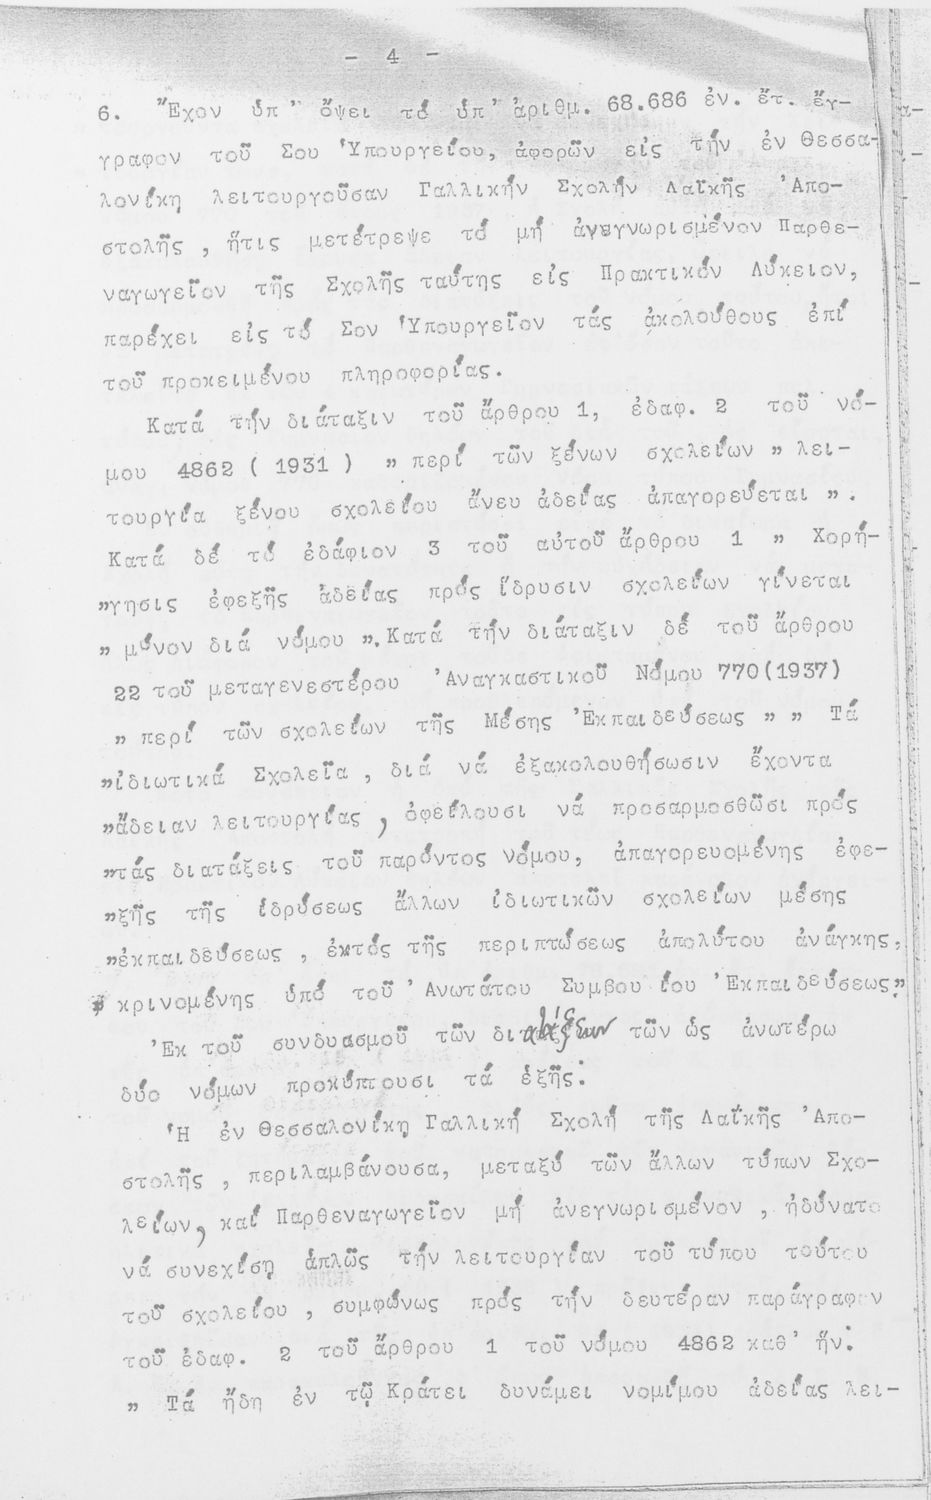 - 4 -
6. Ἔχον ὑπ' ὄψει τό ὑπ' ἀριθμ. 68.686 ἐν. ἔτ. ἔγ-
γραφον τοῦ Σου Ὑπουργείου, ἀφορῶν εἰς τήν ἐν Θεσσα-
λονίκη λειτουργοῦσαν Γαλλικήν Σχολήν Λαϊκῆς Ἀπο-
στολῆς , ἥτις μετέτρεψε τό μή ἀνεγνωρισμένον Παρθε-
ναγωγεῖον τῆς Σχολῆς ταύτης εἰς Πρακτικόν Λύκειον,
παρέχει εἰς τό Σον Ὑπουργεῖον τάς ἀκολούθους ἐπί
τοῦ προκειμένου πληροφορίας.
Κατά τήν διάταξιν τοῦ ἄρθρου 1, ἐδαφ. 2 τοῦ νό-
μου 4862 ( 1931 ) " περί τῶν ξένων σχολείων " λει-
τουργία ξένου σχολείου ἄνευ ἀδείας ἀπαγορεύεται ".
Κατά δέ τό ἐδάφιον 3 τοῦ αὐτοῦ ἄρθρου 1 " Χορή-
"γησις ἐφεξῆς ἀδείας πρός ἵδρυσιν σχολείων γίνεται
" μόνον διά νόμου ". Κατά τήν διάταξιν δέ τοῦ ἄρθρου
22 τοῦ μεταγενεστέρου Ἀναγκαστικοῦ Νόμου 770(1937)
" περί τῶν σχολείων τῆς Μέσης Ἐκπαιδεύσεως " " Τά
"ἰδιωτικά Σχολεῖα , διά νά ἐξακολουθήσωσιν ἔχοντα
"ἄδειαν λειτουργίας , ὀφείλουσι νά προσαρμοσθῶσι πρός
"τάς διατάξεις τοῦ παρόντος νόμου, ἀπαγορευομένης ἐφε-
"ξῆς τῆς ἱδρύσεως ἄλλων ἰδιωτικῶν σχολείων μέσης
"ἐκπαιδεύσεως , ἐκτός τῆς περιπτώσεως ἀπολύτου ἀνάγκης,
" κρινομένης ὑπό τοῦ Ἀνωτάτου Συμβου ίου Ἐκπαιδεύσεως."
Ἐκ τοῦ συνδυασμοῦ τῶν διατάξεων τῶν ὡς ἀνωτέρω
δύο νόμων προκύπτουσι τά ἑξῆς:
Ἡ ἐν Θεσσαλονίκῃ Γαλλική Σχολή τῆς Λαϊκῆς Ἀπο-
στολῆς , περιλαμβάνουσα, μεταξύ τῶν ἄλλων τύπων Σχο-
λείων, καί Παρθεναγωγεῖον μή ἀνεγνωρισμένον , ἠδύνατο
νά συνεχίσῃ ἁπλῶς τήν λειτουργίαν τοῦ τύπου τούτου
τοῦ σχολείου , συμφώνως πρός τήν δευτέραν παράγραφον
τοῦ ἐδαφ. 2 τοῦ ἄρθρου 1 τοῦ νόμου 4862 καθ' ἥν:
" Τά ἤδη ἐν τῷ Κράτει δυνάμει νομίμου ἀδείας λει-